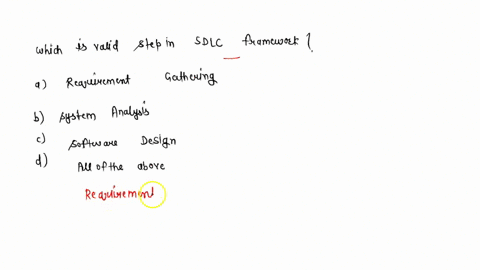 which is valid step in SDLC framework ?
a) Requirement Gathering
b) System Analysis
c) Software Design
d) All of the above
Requirement